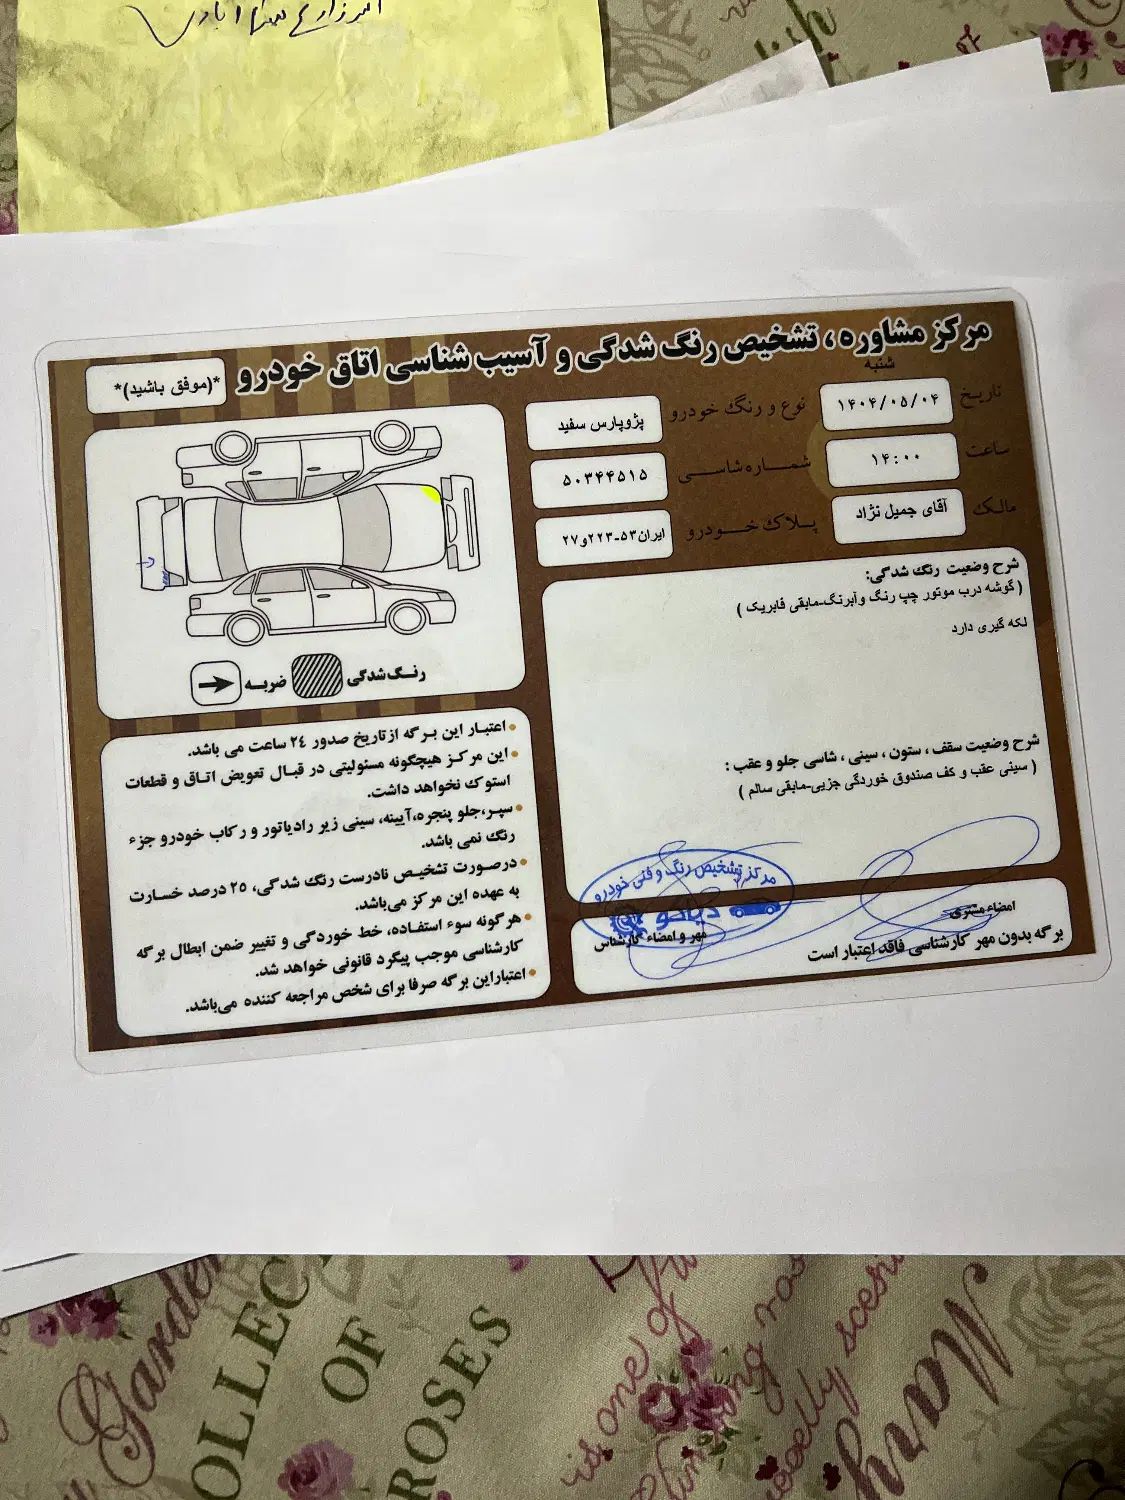 مرکز مشاوره ، تشخیص رنگ شدگی و آسیب شناسی اتاق خودرو
*(موفق باشید)*
شنبه
تاریخ ۱۴۰۴/۰۵/۰۴
نوع و رنگ خودرو پژوپارس سفید
ساعت ۱۴:۰۰
شماره شاسی ۵۰۳۴۴۵۱۵
مالک آقای جمیل نژاد
پلاک خودرو ایران۵۳-۲۲۳و۲۷
شرح وضعیت رنگ شدگی:
( گوشه درب موتور چپ رنگ وآبرنگ-مابقی فابریک )
لکه گیری دارد
شرح وضعیت سقف ، ستون ، سینی ، شاسی جلو و عقب :
( سینی عقب و کف صندوق خوردگی جزیی-مابقی سالم )
امضاء مشتری
مهر و امضاء کارشناس
برگه بدون مهر کارشناسی فاقد اعتبار است
مرکز تشخیص رنگ و فنی خودرو
دیاکو
رنگ شدگی
ضربه
• اعتبار این برگه از تاریخ صدور ۲۴ ساعت می باشد.
• این مرکز هیچگونه مسئولیتی در قبال تعویض اتاق و قطعات
استوک نخواهد داشت.
• سپر،جلو پنجره،آیینه، سینی زیر رادیاتور و رکاب خودرو جزء
رنگ نمی باشد.
• درصورت تشخیص نادرست رنگ شدگی، ۲۵ درصد خسارت
به عهده این مرکز می‌باشد.
• هرگونه سوء استفاده، خط خوردگی و تغییر ضمن ابطال برگه
کارشناسی موجب پیگرد قانونی خواهد شد.
• اعتباراین برگه صرفا برای شخص مراجعه کننده می‌باشد.
Garden
COLLEC
OF
ROSES
is one of
Mary